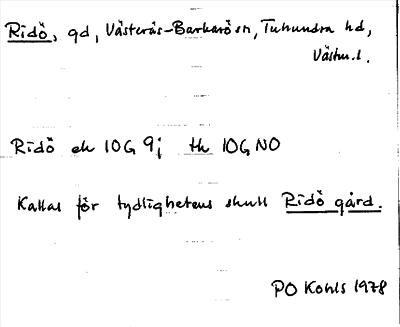 Ridö, gd, Västerås-Barkarö sn, Tuhundra hd,
Västm.l.
Ridö ek 10G 9j th 10G NO
Kallas för tydlighetens skull Ridö gård.
PO Kohls 1978